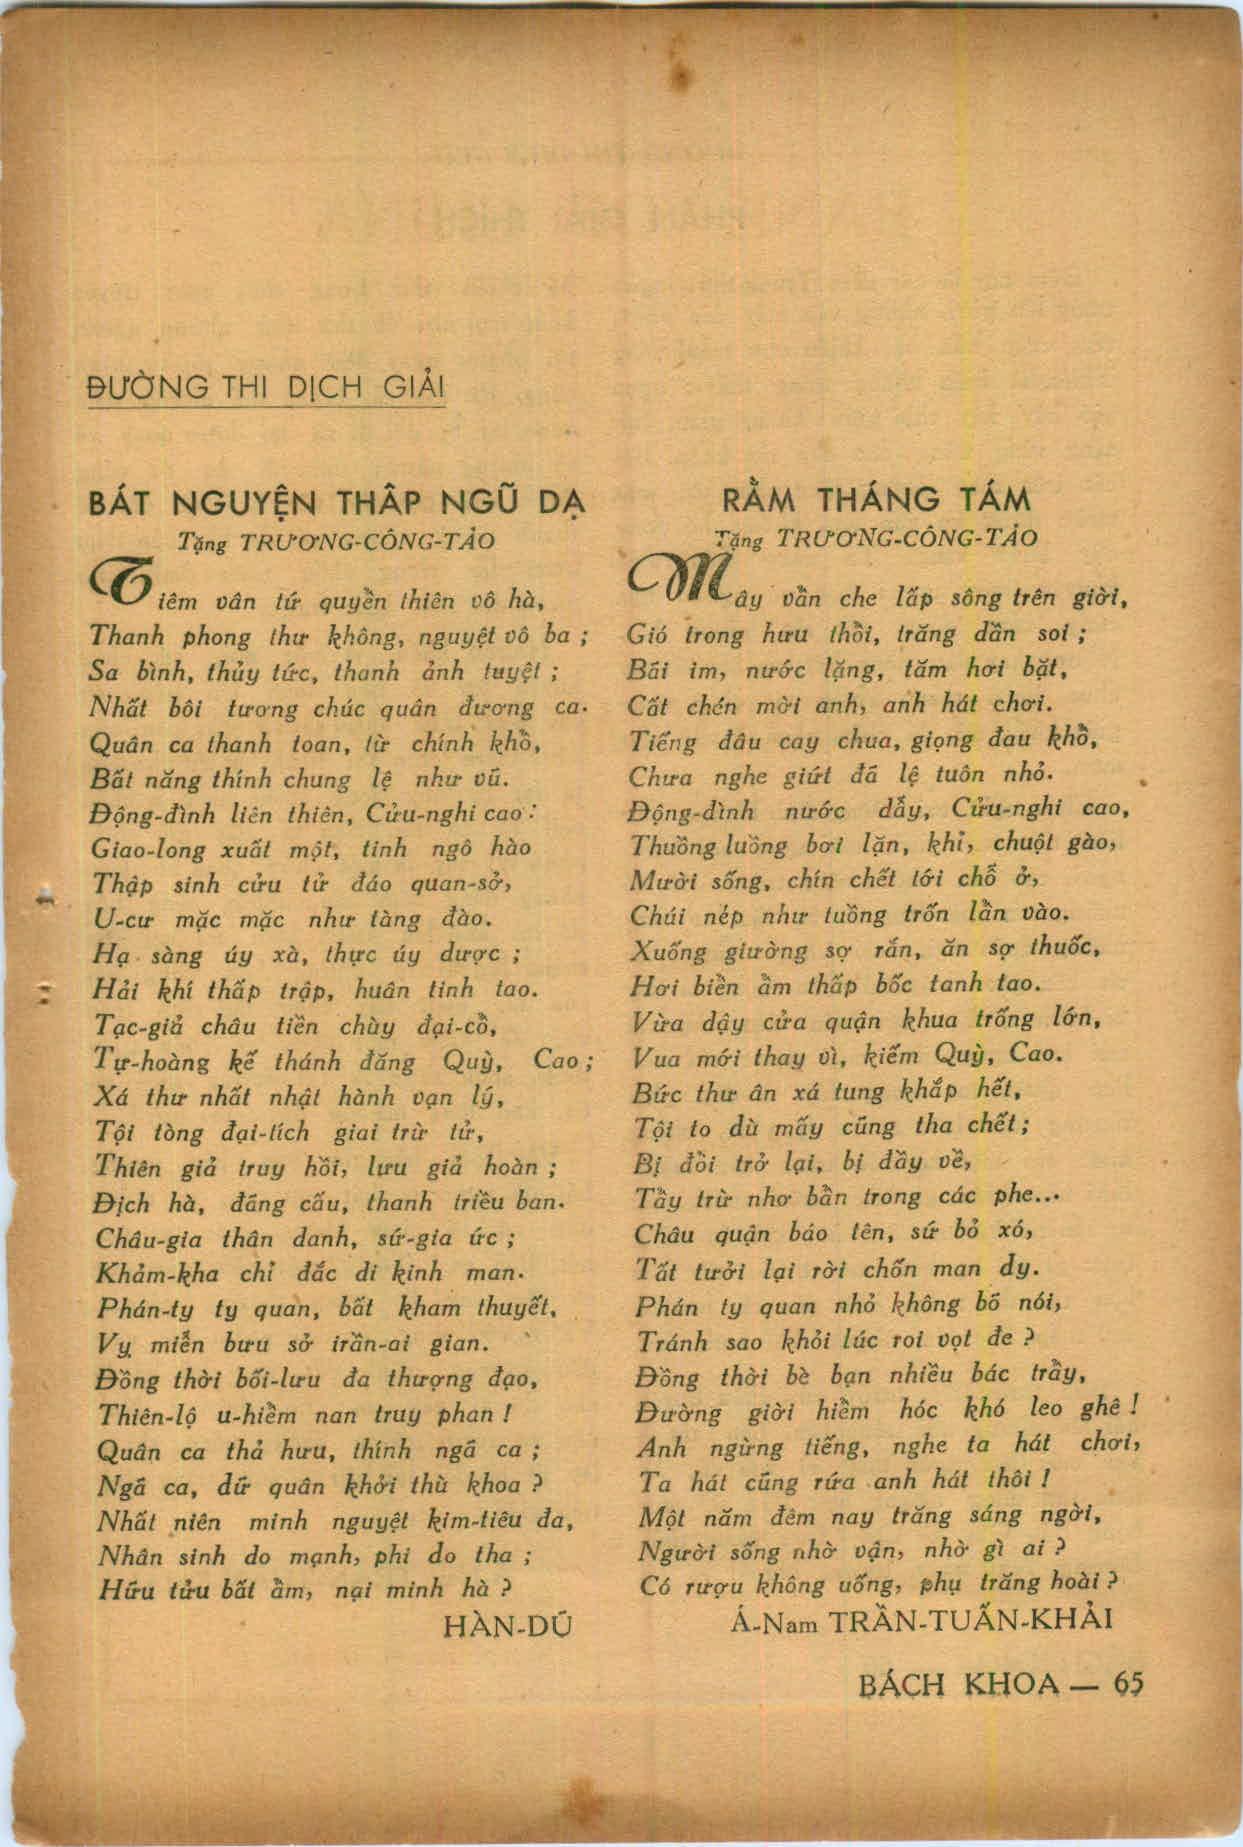 ĐƯỜNG THI DỊCH GIẢI
BÁT NGUYỆN THÂP NGŨ DẠ
Tặng TRƯƠNG-CÔNG-TẢO
Tiêm vân tứ quyền thiên vô hà,
Thanh phong thư không, nguyệt vô ba ;
Sa bình, thủy tức, thanh ảnh tuyệt ;
Nhất bôi tương chúc quân đương ca.
Quân ca thanh toan, từ chính khổ,
Bất năng thính chung lệ như vũ.
Động-đình liên thiên, Cửu-nghi cao :
Giao-long xuất một, tinh ngô hào
Thập sinh cửu tử đáo quan-sở,
U-cư mặc mặc như tàng đào.
Hạ sàng úy xà, thực úy dược ;
Hải khí thấp trập, huân tinh tao.
Tạc-giả châu tiền chùy đại-cổ,
Tự-hoàng kế thánh đăng Quỳ, Cao ;
Xá thư nhất nhật hành vạn lý,
Tội tòng đại-tích giai trừ tử,
Thiên giả truy hồi, lưu giả hoàn ;
Địch hà, đãng cấu, thanh triều ban.
Châu-gia thân danh, sứ-gia ức ;
Khảm-kha chỉ đắc di kinh man.
Phán-ty ty quan, bất kham thuyết,
Vỵ miễn bưu sở trần-ai gian.
Đồng thời bối-lưu đa thượng đạo,
Thiên-lộ u-hiểm nan truy phan !
Quân ca thả hưu, thính ngã ca ;
Ngã ca, dữ quân khởi thù khoa ?
Nhất niên minh nguyệt kim-tiêu đa,
Nhân sinh do mạnh, phi do tha ;
Hữu tửu bất ẩm, nại minh hà ?
HÀN-DŨ
RẰM THÁNG TÁM
Tặng TRƯƠNG-CÔNG-TẢO
Mây vần che lấp sông trên giời,
Gió trong hưu thổi, trăng dần soi ;
Bãi im, nước lặng, tăm hơi bặt,
Cất chén mời anh, anh hát chơi.
Tiếng đâu cay chua, giọng đau khổ,
Chưa nghe giứt đã lệ tuôn nhỏ.
Động-đình nước dẫy, Cửu-nghi cao,
Thuồng luồng bơi lặn, khỉ, chuột gào,
Mười sống, chín chết tới chỗ ở,
Chúi nép như tuồng trốn lẩn vào.
Xuống giường sợ rắn, ăn sợ thuốc,
Hơi biển ẩm thấp bốc tanh tao.
Vừa dậy cửa quận khua trống lớn,
Vua mới thay vì, kiếm Quỳ, Cao.
Bức thư ân xá tung khắp hết,
Tội to dù mấy cũng tha chết ;
Bị đổi trở lại, bị đầy về,
Tẩy trừ nhơ bẩn trong các phe...
Châu quận báo tên, sứ bỏ xó,
Tất tưởi lại rời chốn man dy.
Phán ty quan nhỏ không bõ nói,
Tránh sao khỏi lúc roi vọt đe ?
Đồng thời bè bạn nhiều bác trẩy,
Đường giời hiểm hóc khó leo ghê !
Anh ngừng tiếng, nghe ta hát chơi,
Ta hát cũng rứa anh hát thôi !
Một năm đêm nay trăng sáng ngời,
Người sống nhờ vận, nhờ gì ai ?
Có rượu không uống, phụ trăng hoài ?
Á-Nam TRẦN-TUẤN-KHẢI
BÁCH KHOA — 65